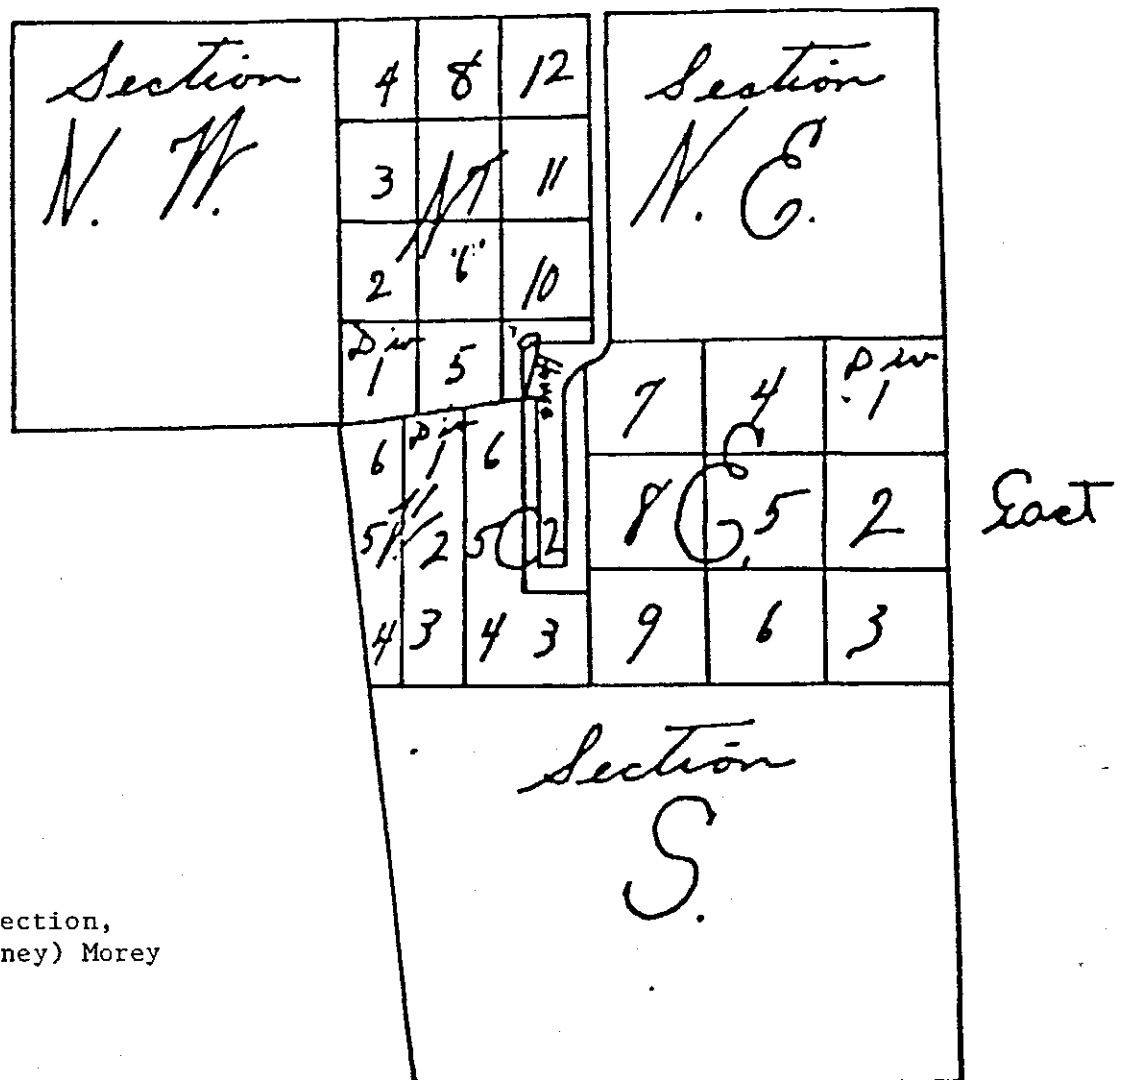 Section
N. W.
4 8 12
3 N 11
2 "6" 10
Div
1 5
Section
N. E.
7 4 Div 1
8 E. 5 2
9 6 3
East
6 Div 1 6
5 W. 2 5 C 2
4 3 4 3
Section
S.
ection,
ney) Morey